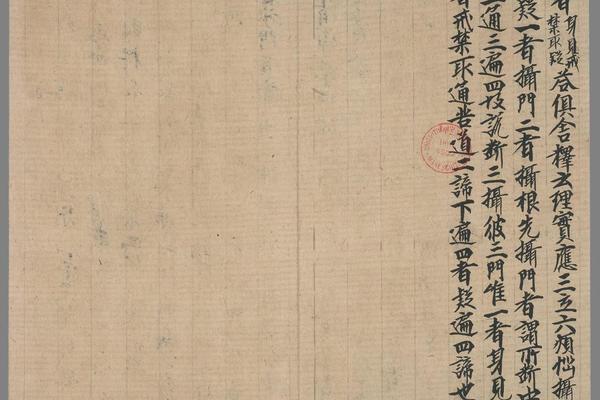 者身見戒禁取疑答俱舍釋云理實應言六煩惱攝
疑一者攝門二者攝根先攝門者謂所斷中
通三遍四故說斷三攝彼三門唯一者身見
者戒禁取通苦道二諦下遍四者疑遍四諦也